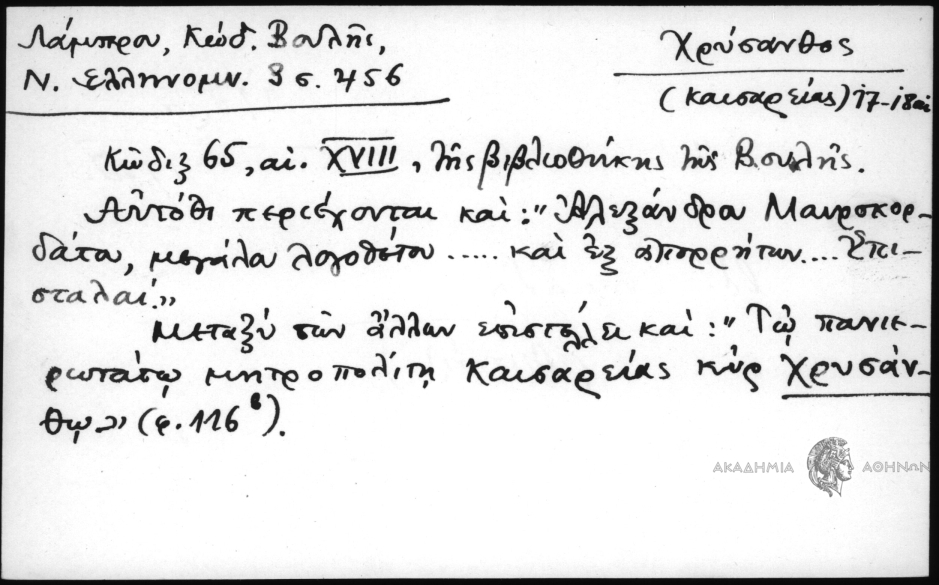 Λάμπρου, Κώδ. Βουλῆς,
Ν. Ἑλληνομν. 3 σ. 456
Χρύσανθος
(Καισαρείας) 17-18 αἰ
Κῶδιξ 65, αἰ. XVIII, τῆς βιβλιοθήκης τῆς Βουλῆς.
Αὐτόθι περιέχονται καὶ: "Ἀλεξάνδρου Μαυροκορ-
δάτου, μεγάλου λογοθέτου ..... καὶ ἐξ ἀπορρήτων .... Ἐπι-
στολαί."
Μεταξὺ τῶν ἄλλων ἐπιστέλλει καὶ: "Τῷ πανιε-
ρωτάτῳ μητροπολίτῃ Καισαρείας κὺρ Χρυσάν-
θῳ" (φ. 116 β).
ΑΚΑΔΗΜΙΑ ΑΘΗΝΩΝ